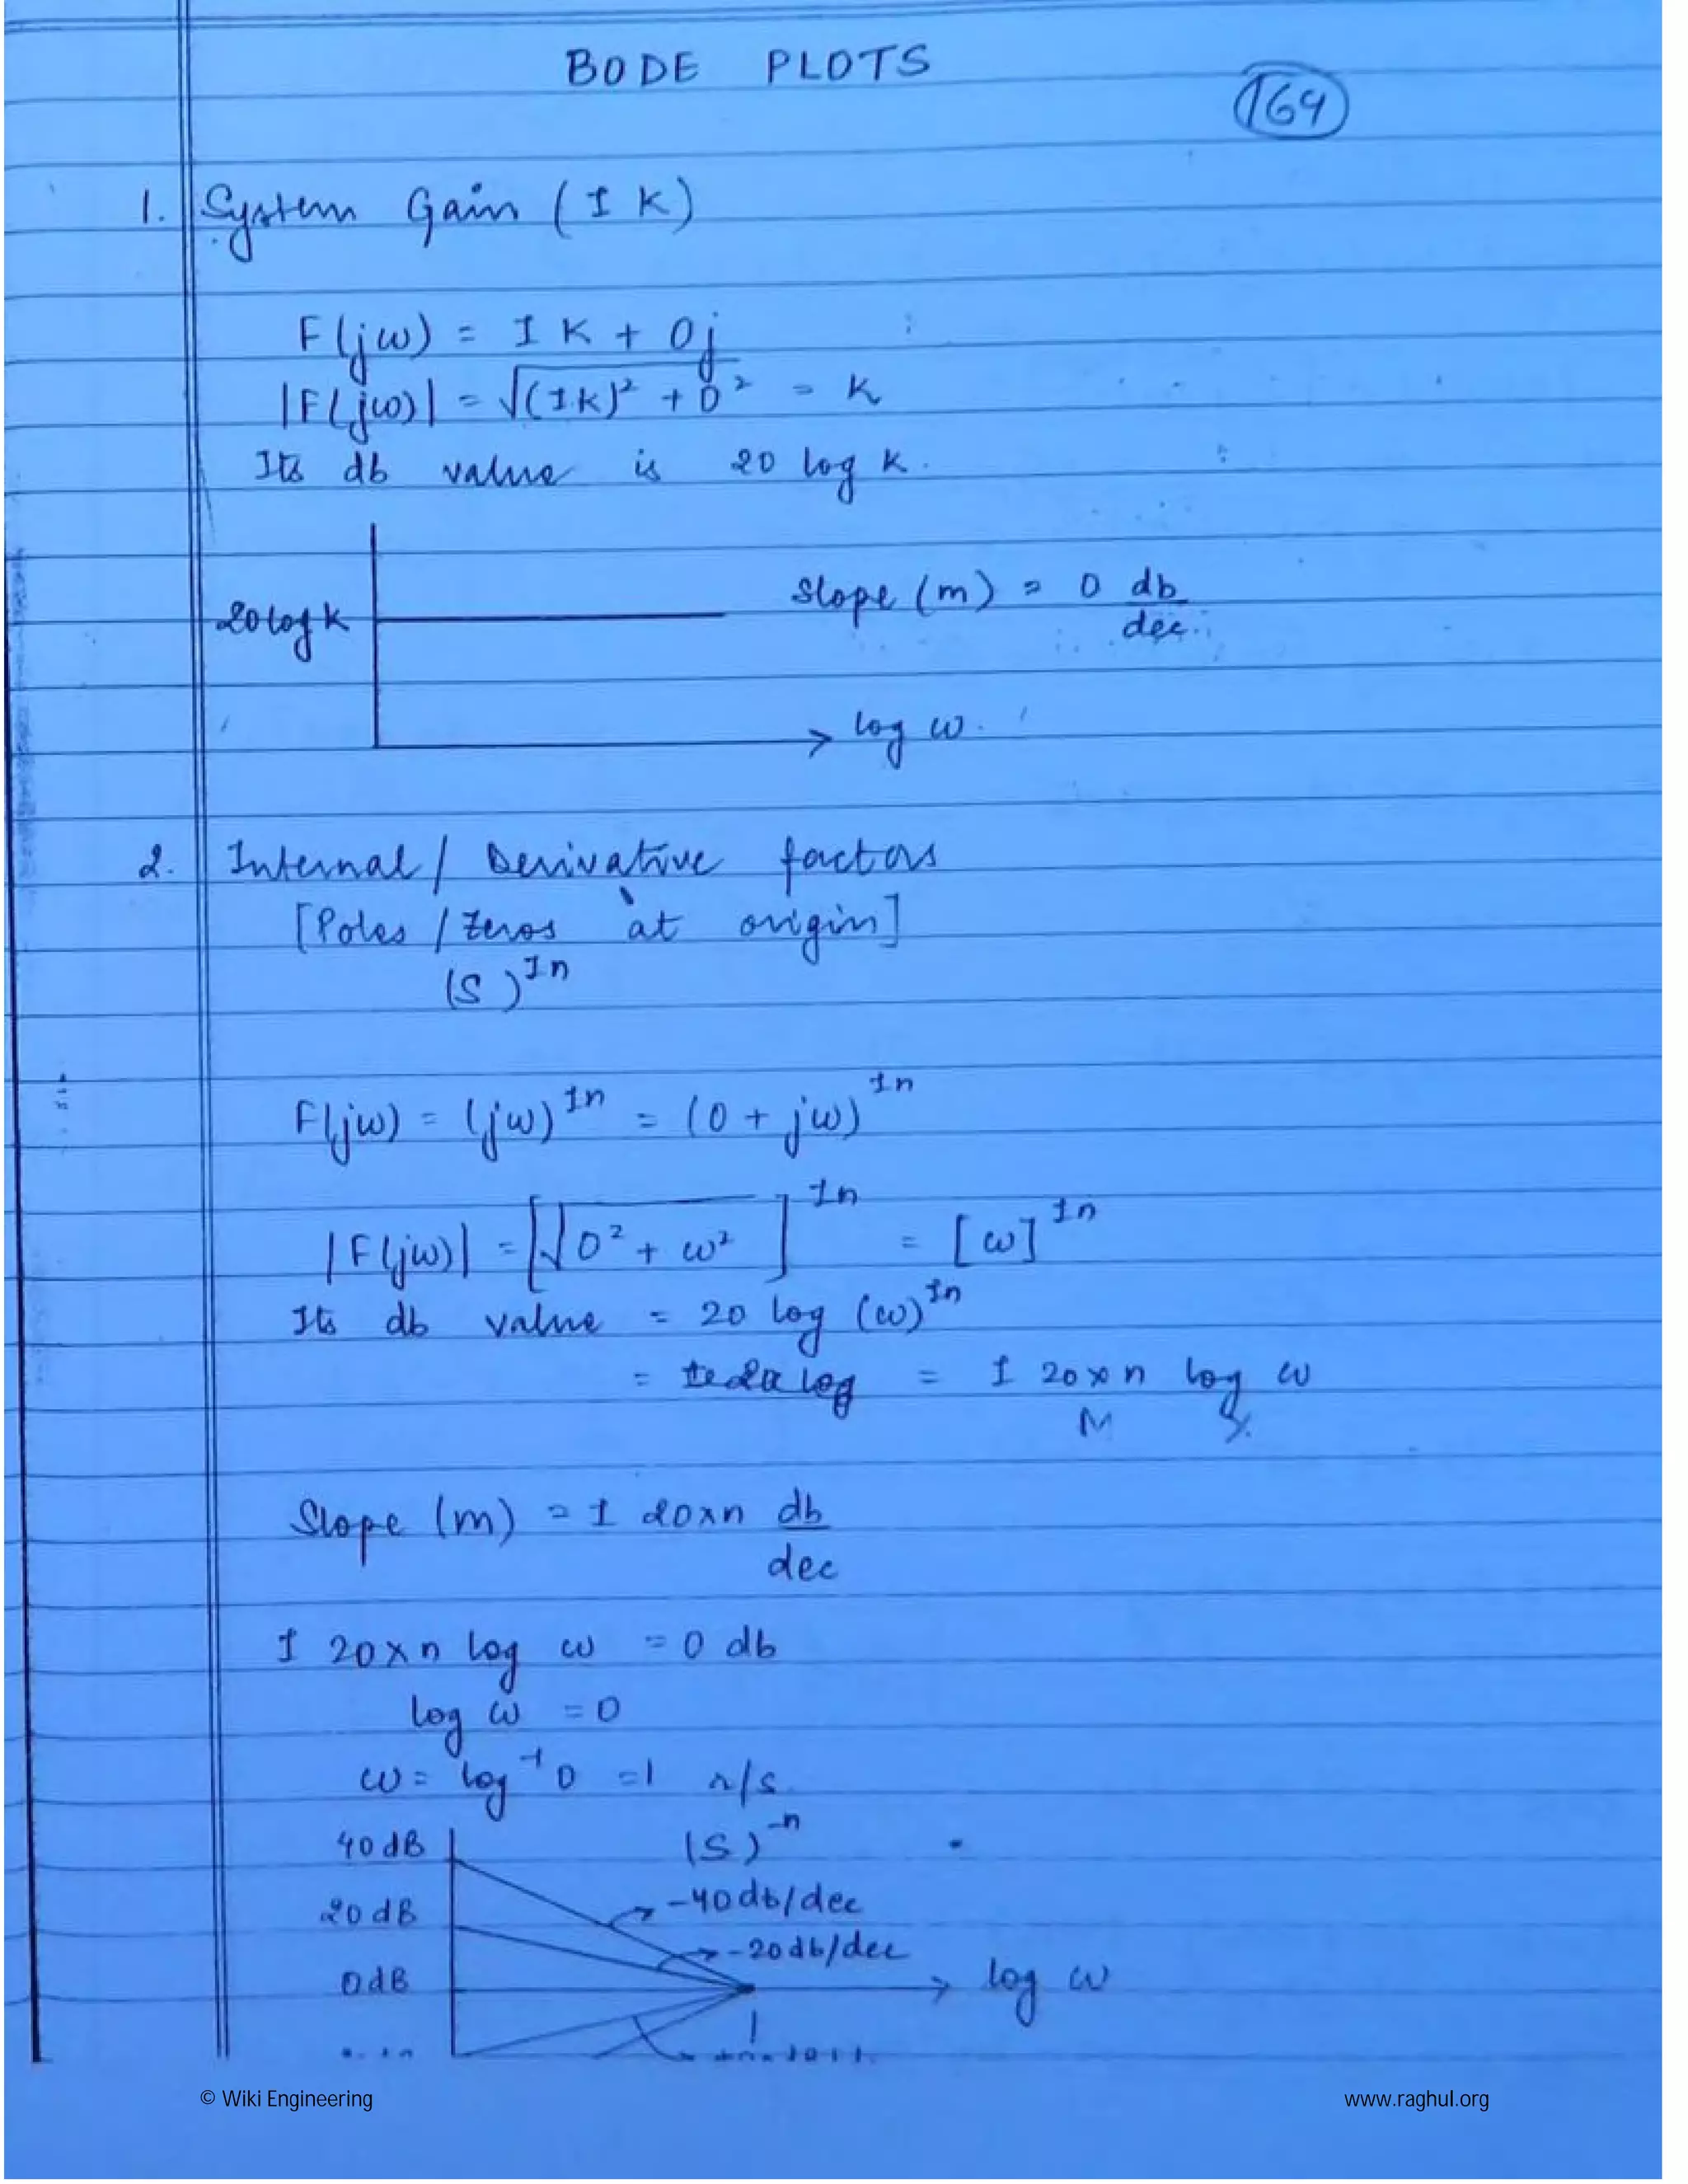 BODE PLOTS
164
1. System Gain (± K)
F(jω) = ± K + 0j
|F(jω)| = √(±K)² + 0² = K
Its db value is 20 log K.
20 log K
Slope (m) = 0 db/dec.
log ω.
2. Internal / Derivative factors
[Poles / Zeros at origin]
(S)^±n
F(jω) = (jω)^±n = (0 + jω)^±n
|F(jω)| = [√0² + ω²]^±n = [ω]^±n
Its db value = 20 log (ω)^±n
= = ± 20×n log ω
M X
Slope (m) = ± 20×n db/dec
± 20×n log ω = 0 db
log ω = 0
ω = log⁻¹ 0 = 1 r/s.
40 dB (S)^-n
-40 db/dec
20 dB
-20 db/dec
0 dB log ω
1
© Wiki Engineering www.raghul.org